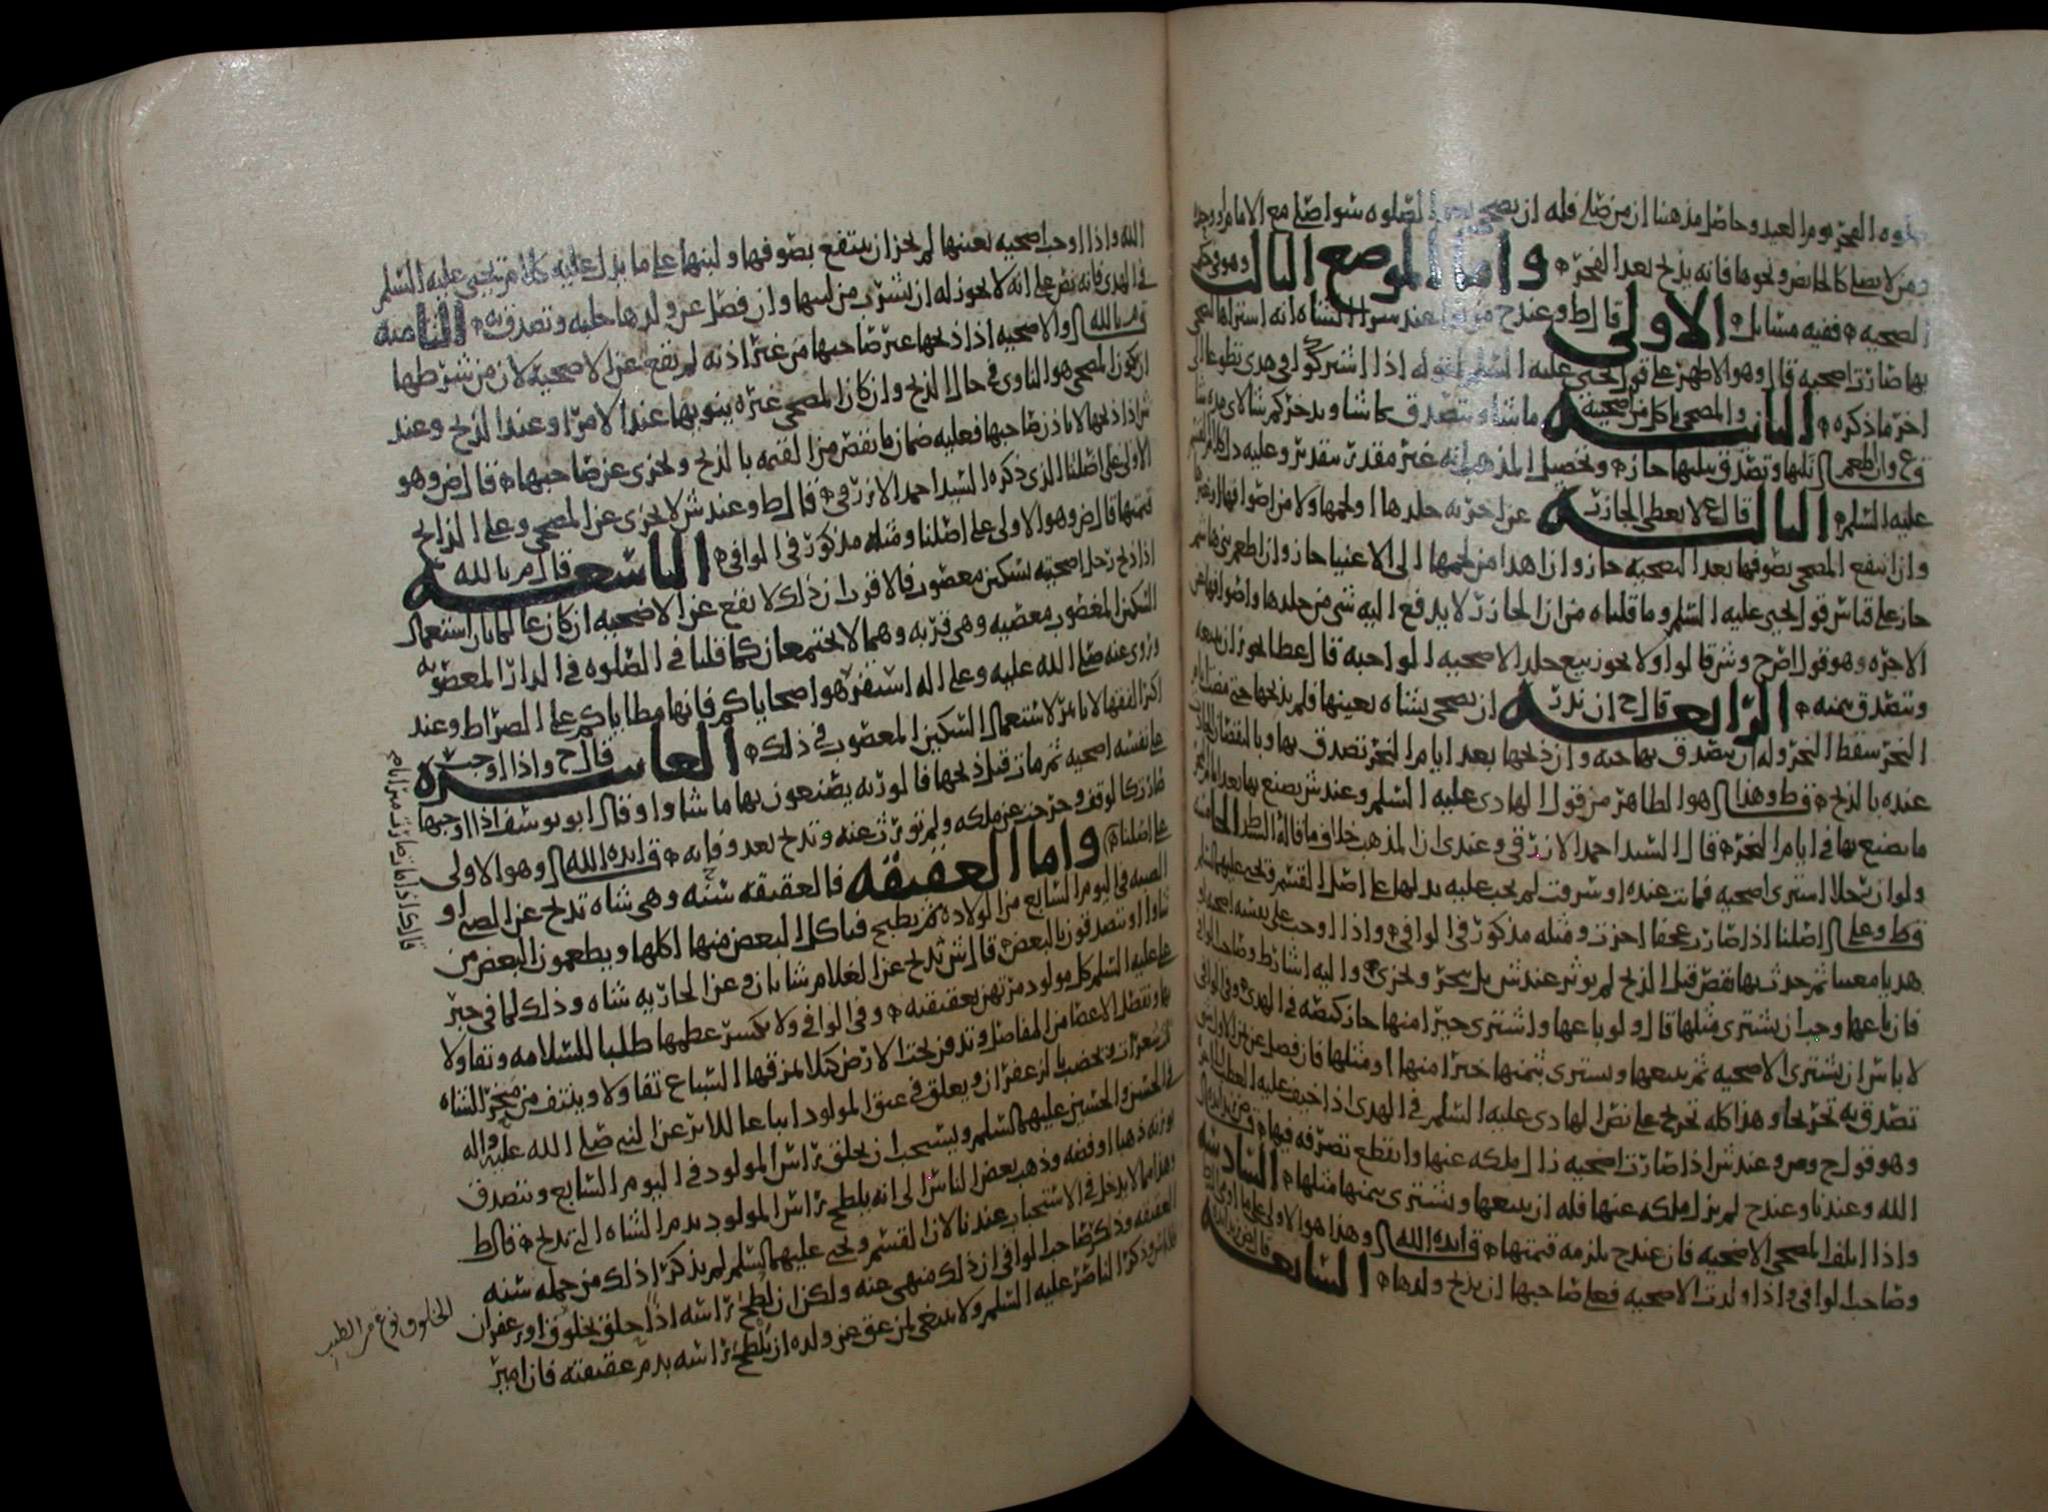 صلوه الفجر يوم العيد وحاصل مذهبنا ان من صلى فله ان يضحي بعد الصلوه سوا صلى مع الامام او وحده
ومن لا يصلي كالحائض ونحوها فانه يذبح بعد الفجر واما الموضع الثالث وهو في حكم
الضحيه ففيه مسايل الاولى قال ط وعند ح من نوا عند شرا الشاه انه اشتراها ليضحي
بها صارت اضحيه قال وهو الاظهر على قول يحيى عليه السلم لقوله اذا اشتركوا في هدي تطوعا الى
اخر ما ذكره الثانيه والمضحي ياكل من اضحيته ما شا ويتصدق بما شا ويدخر كم شا لاي مده شا
ع وان اطعم ثلثها وتصدق بثلثها جاز وتحصيل المذهب انه غير مقدر بتقدير وعليه دل كلام القسم
عليه السلم الثالثه قال ع لا يعطى الجازر عن اجرته جلدها او لحمها ولا من اصوافها
وان انتفع المضحي بصوفها بعد التضحيه جاز وان اهدا من لحمها الى الاغنيا جاز وان اطعم بني هاشم
جاز على قياس قول يحيى عليه السلم وما قلناه من ان الجازر لا يدفع اليه شي من جلدها واصوافها عن
الاجره وهو قول اصح وش قالوا ولا يجوز بيع جلد الاضحيه الواجبه قال عطا يجوز ان يبيعه
ويتصدق بثمنه الرابعه قال ح ان نذر ان يضحي بشاه بعينها فلم يذبحها حتى مضت ايام
النحر سقط النحر وله ان يتصدق بها حيه وان ذبحها بعد ايام النحر تصدق بها وبالنقصان الحادث
عنده بالذبح قال ط وهذا هو الظاهر من قول الهادي عليه السلم وعند ش يصنع بها بعد ايام النحر
ما يصنع بها في ايام النحر قال السيد احمد الازرقي وعندي ان المذهب خلاف ما قاله السيد ط الخامسه
ولو ان رجلا اشترى اضحيه فماتت عنده او سرقت لم يجب عليه بدلها على اصل القسم ويحيى عليهما السلم
قال ط وعلى اصلنا اذا صارت عجفا اجزت ومثله مذكور في الوافي واذا اوجب على نفسه اضحيه او
هديا معينا ثم حدث بها نقص قبل الذبح لم يوثر عند ش بل ينحر ويجزي واليه اشار ط وصاحب الوافي
فان باعها وجب ان يشتري مثلها قال ولو باعها واشترى خيرا منها جاز كنصه في الهدي وفي الوافي
لا باس ان يشتري الاضحيه ثم يبيعها ويشتري بثمنها خيرا منها او مثلها فان فضل عن ثمن الاولى شي
تصدق به تخريجا وهذا كله تخريج على نص الهادي عليه السلم في الهدي اذا خيف عليه العطب
وهو قول ح وم وعند ش اذا صارت اضحيه زال ملكه عنها وانقطع تصرفه فيها
الله وعندنا وعند ح لم يزل ملكه عنها فله ان يبيعها ويشتري بثمنها مثلها السادسه
واذا اتلف المضحي الاضحيه فان عند ح يلزمه قيمتها قال ايده الله وهذا هو الاولى على
وصاحب الوافي واذا ولدت الاضحيه فعلى صاحبها ان يذبح ولدها السابعه
الله واذا اوجب اضحيه بعينها لم يجز ان ينتفع بصوفها ولبنها على ما يدل عليه كلام يحيى عليه السلم
في الهدي فانه نص على انه لا يجوز له ان يشرب من لبنها وان فضل عن ولدها حلبه وتصدق به الثامنه
قال م بالله والاضحيه اذا ذبحها غير صاحبها من غير اذنه لم تقع عن الاضحيه لان من شرطها
ان يكون المضحي هو الناوي في حال الذبح وان كان المضحي غيره ينويها عند الامر او عند الذبح وعند
ش اذا ذبحها لا باذن صاحبها فعليه ضمان ما نقص من القيمه بالذبح وتجزي عن صاحبها قال ض وهو
الاولى على اصلنا الذي ذكره السيد احمد الازرقي قال ط وعند ش لا يجزي عن المضحي وعلى الذابح
قيمتها قال ض وهو الاولى على اصلنا ومثله مذكور في الوافي التاسعه قال م بالله
اذا ذبح رجل اضحيته بسكين مغصوب فالاقرب ان ذلك لا يقع عن الاضحيه ان كان عالما بان استعمال
السكين المغصوب معصيه وهي قربه وهما لا يجتمعان كما قلنا في الصلوه في الدار المغصوبه
وروي عنه صلى الله عليه وعلى اله استفرهوا ضحاياكم فانها مطاياكم على الصراط وعند
اكثر الفقها لا تاثير لاستعمال السكين المغصوب في ذلك العاشره قال ح واذا اوجب
على نفسه اضحيه ثم مات قبل ذبحها فالورثه يصنعون بها ما شاوا وقال ابو يوسف اذا اوجبها
صارت كالوقف وخرجت عن ملكه ولم تورث عنه وتذبح بعد وفاته قال ايده الله وهو الاولى
على اصلنا واما العقيقه فالعقيقه سنه وهي شاه تذبح عن الصبي او
الصبيه في اليوم السابع من الولاده ثم يطبخ فياكل البعض منها اهلها ويطعمون البعض من
شاوا او يتصدقون بالبعض قال ش تذبح عن الغلام شاتان وعن الجاريه شاه وذلك لما في خبر
علي عليه السلم كل مولود مرتهن بعقيقته وفي الوافي ولا يكسر عظمها طلبا للسلامه وتفاولا
بها وتفصل الاعضا من المفاصل وتدفن تحت الارض كيلا تمزقها السباع تفاولا وينتف من منخر الشاه
شعرات وتخضب بالزعفران ويعلق في عنق المولود اتباعا للاثر عن النبي صلى الله عليه واله
في الحسن والحسين عليهما السلم ويستحب ان يحلق راس المولود في اليوم السابع ويتصدق
بوزنه ذهبا او فضه وذهب بعض الناس الى انه يلطخ راس المولود بدم الشاه التي تذبح قال ط
وهذا مما لا يدخل في الاستحباب عندنا لان القسم ويحيى عليهما السلم لم يذكرا ذلك من جمله سنه
العقيقه وذكر صاحب الوافي ان ذلك منهي عنه ولكن ان لطخ راسه اذا حلق بخلوق او زعفران
فلا باس وذكر الناصر عليه السلم ولا ينبغي لمن عق عن ولده ان يلطخ راسه بدم عقيقته فان امير
الخلوق نوع من الطيب